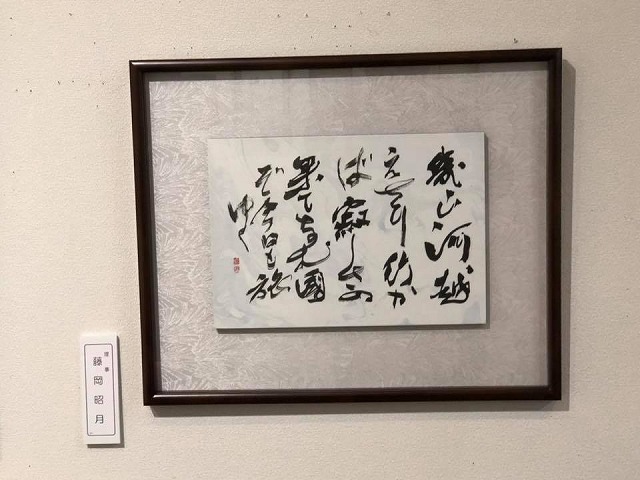 幾山河越
えさり行か
ば寂しさの
果てなむ國
ぞ今日も旅
ゆく
理事
藤岡昭月